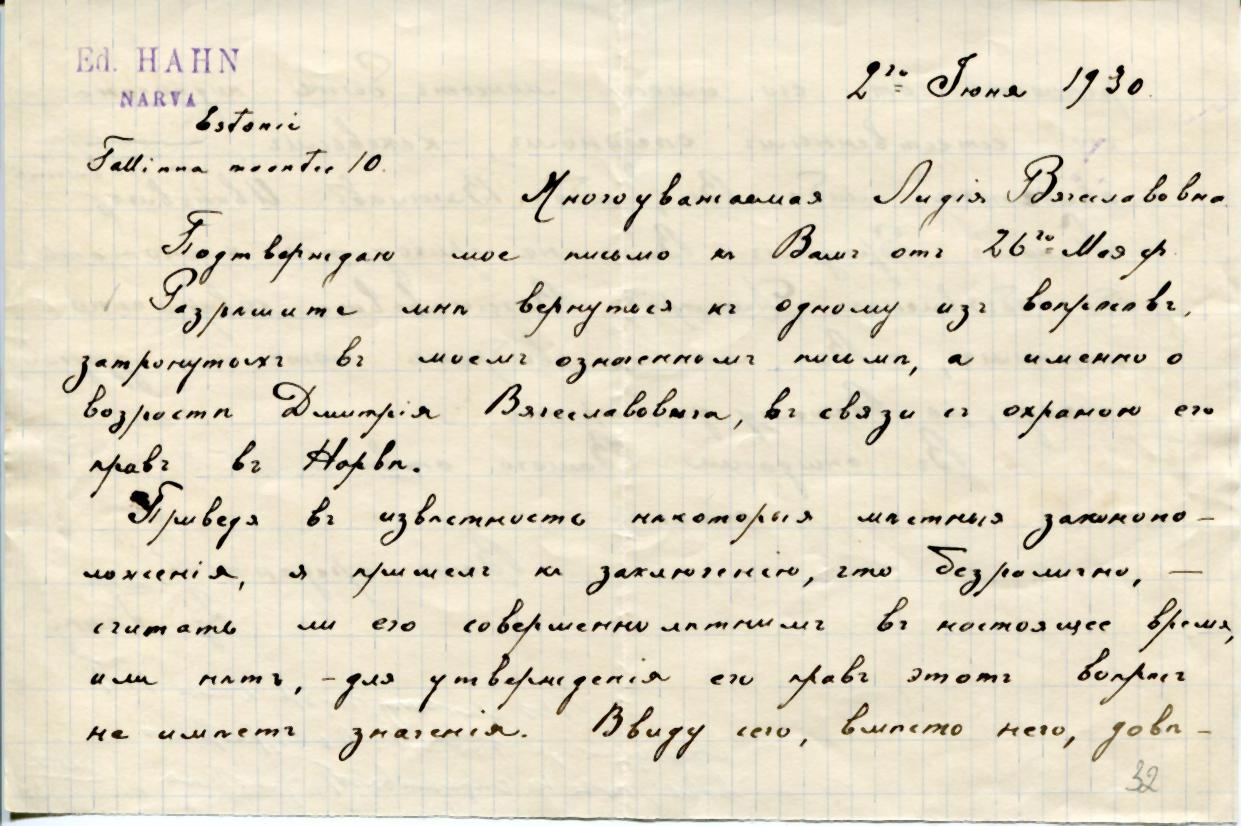 Ed. HAHN
NARVA
Estonie
Tallinna maantee 10.
2го Іюня 1930.
Многоуважаемая Лидія Вячеславовна
Подтверждаю мое письмо къ Вамъ отъ 26го Мая
Разрѣшите мнѣ вернуться къ одному изъ вопросовъ,
затронутыхъ въ моемъ означенномъ письмѣ, а именно о
возрастѣ Дмитрія Вячеславовича, въ связи съ охраною его
правъ въ Нарвѣ.
Приведя въ извѣстность нѣкоторыя мѣстныя законопо-
ложенія, я пришелъ къ заключенію, что безразлично, —
считать ли его совершеннолѣтнимъ въ настоящее время,
или нѣтъ, - для утвержденія его правъ этотъ вопросъ
не имѣетъ значенія. Ввиду сего, вмѣсто него, довѣ-
32